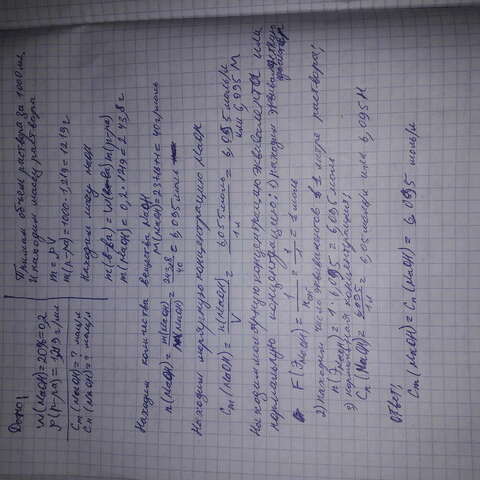 Дано:
W(NaOH)=20%=0,2
ρ(р-ра)=1,219 г/мл
Cm(NaOH)=? моль/л
Cn(NaOH)=? моль/л
Примам объем раствора за 1000 мл,
и находим массу раствора
m=ρV
m(р-ра)=1000·1,219=1219 г
Находим массу NaOH
m(в-ва)=W(в-ва)m(р-ра)
m(NaOH)=0,2·1219=243,8 г
Находим количества вещества NaOH
M(NaOH)=23+16+1=40 г/моль
n(NaOH)=m(NaOH)/M(NaOH)=243,8/40=6,095 моль
Находим молярную концентрацию NaOH
Cm(NaOH)=n(NaOH)/V=6,055 моль/1 л=6,095 моль/л
или 6,995 M
Находим молярную концентрацию эквивалента или
нормальную концентрацию: 1) находим эквивалентную
F(ЭNaOH)=1/nOH=1/1=1 моль
2) находим число эквивалентов в 1 литре раствора;
n(ЭNaOH)=1·6,095=6,095 моль
3) нормальная концентрация;
Cn(NaOH)=6,095/1л=6,05 моль/л или 6,095 Н
Ответ;
Cm(NaOH)=Cn(NaOH)=6,095 моль/л